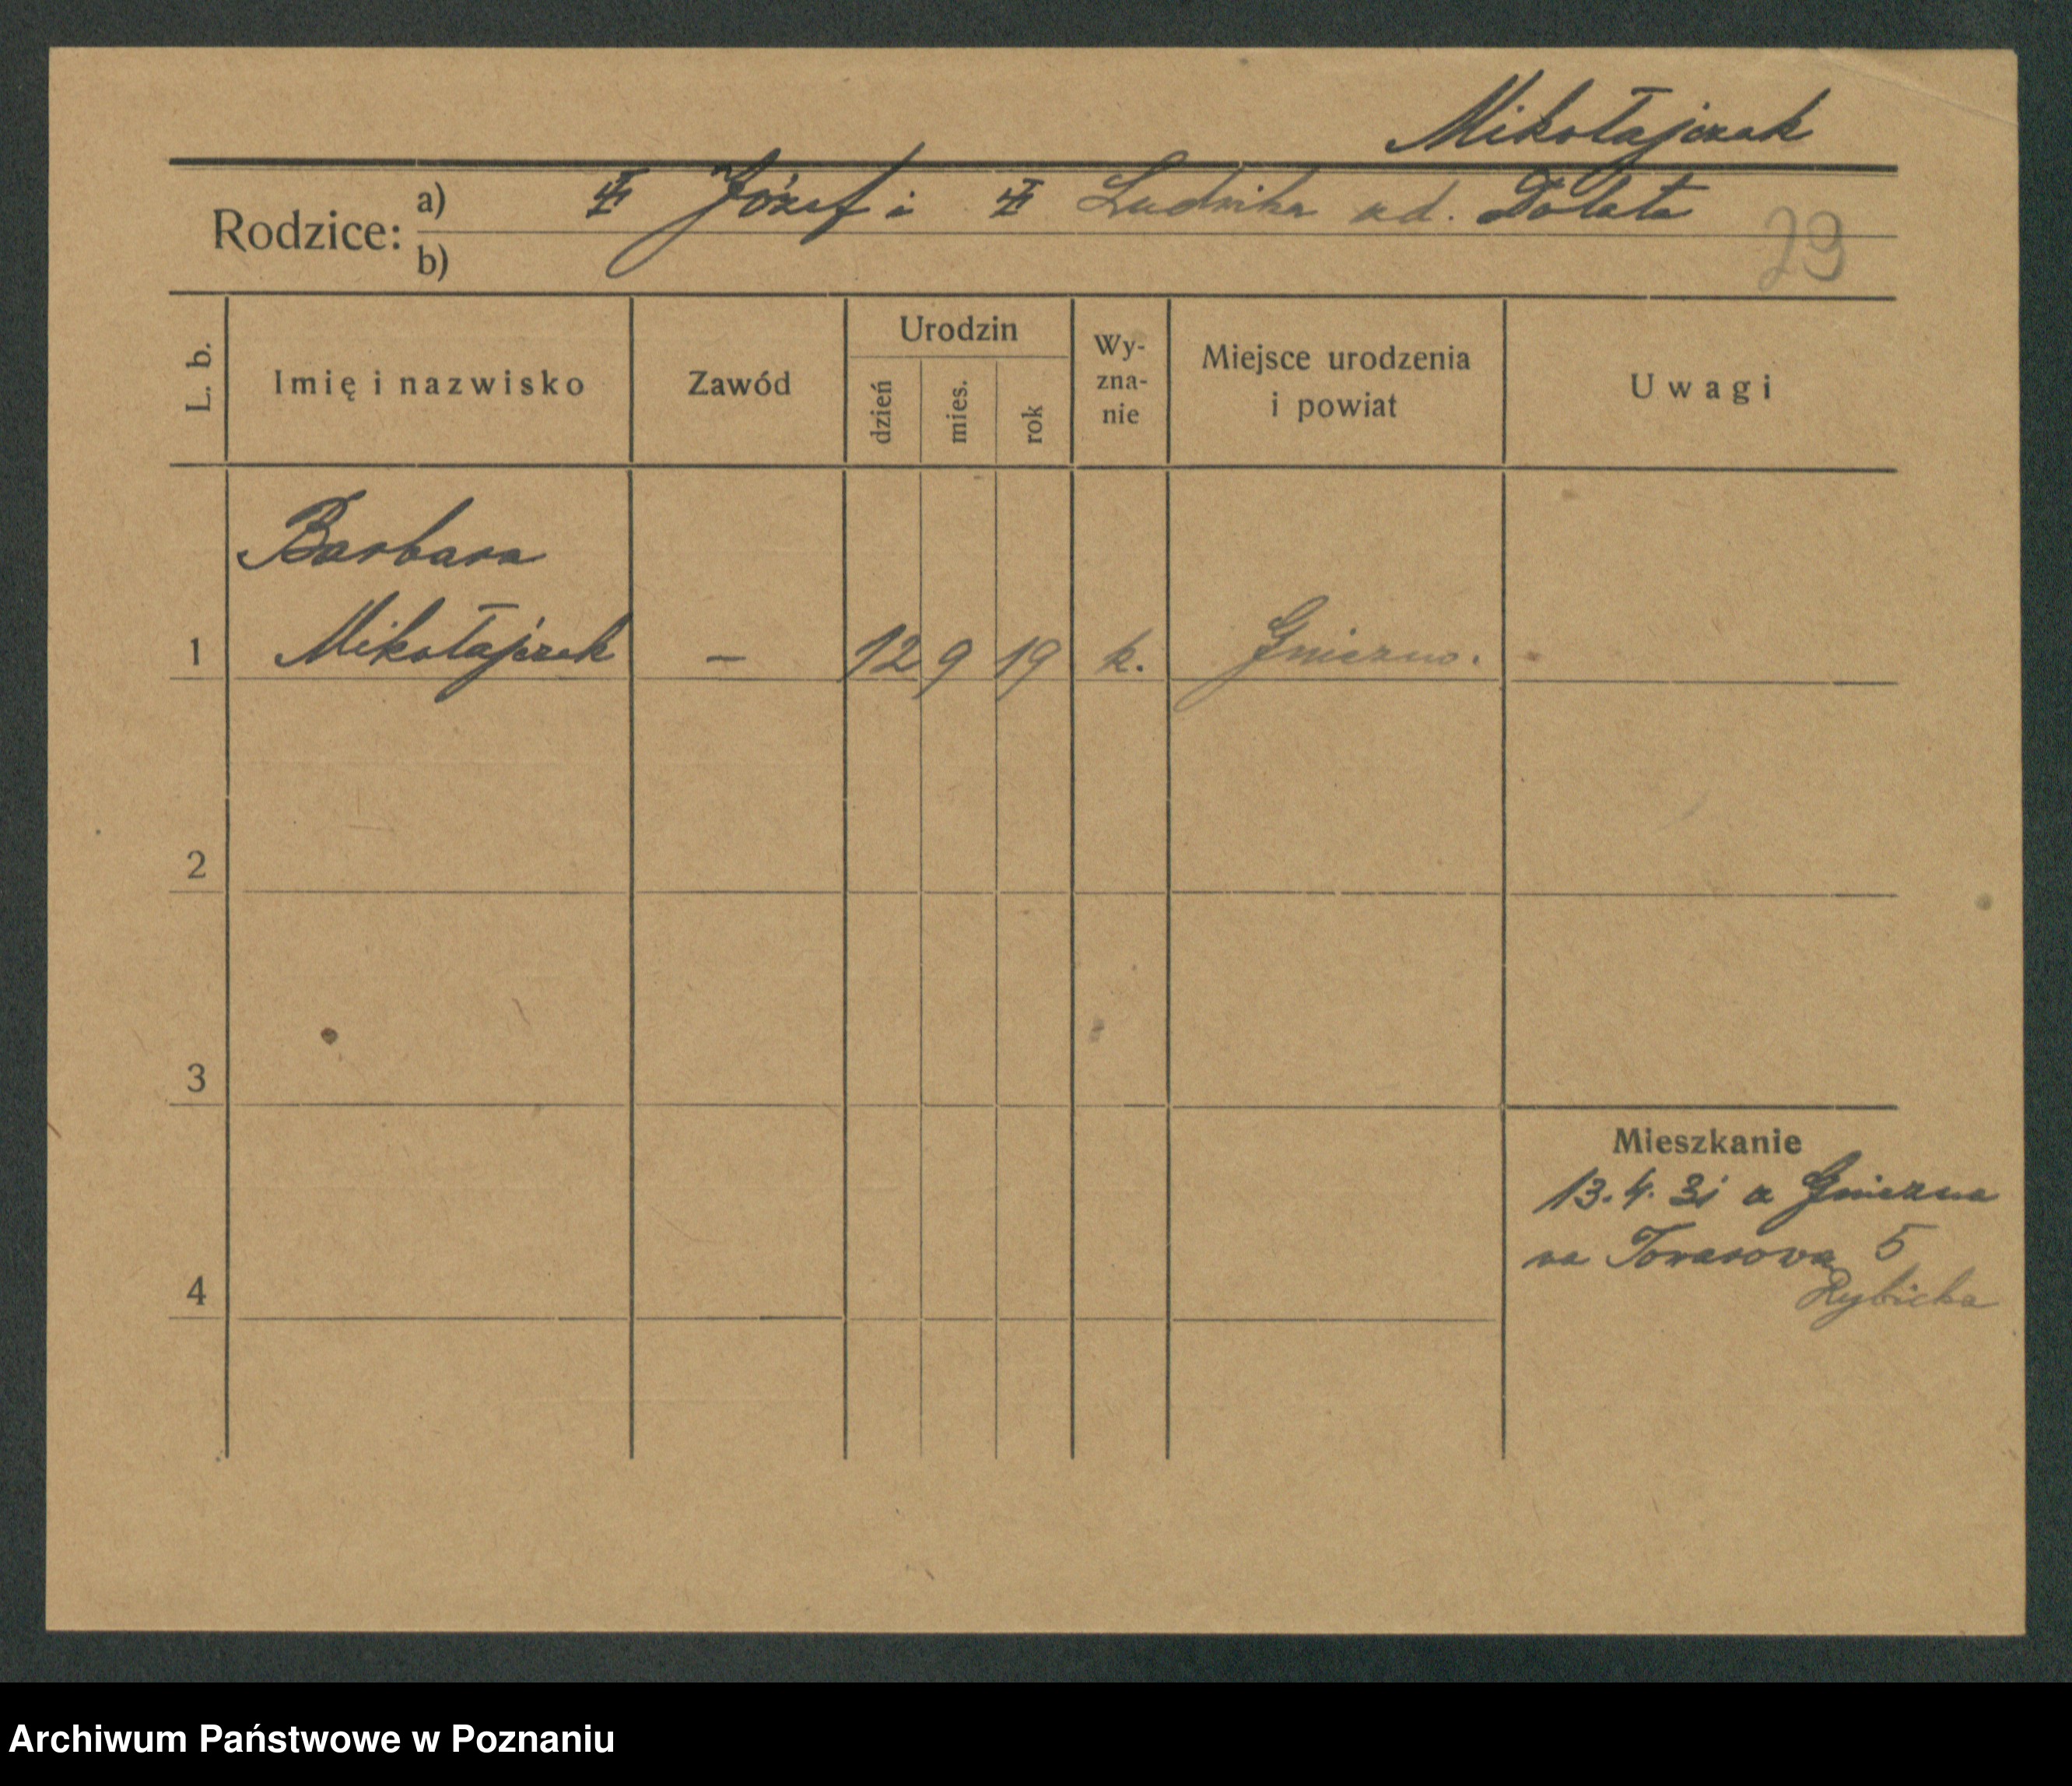 Mikołajczak
Rodzice: a) Józef i Ludwika ud. Dolata
b)
23
L. b.
Imię i nazwisko
Zawód
Urodzin
dzień
mies.
rok
Wy-
zna-
nie
Miejsce urodzenia
i powiat
Uwagi
Barbara
1 Mikołajczak – 12 9 19 k. Gniezno.
2
3
4
Mieszkanie
13. 4. 31 z Gniezna
na Towarowa 5
Rybicka
Archiwum Państwowe w Poznaniu